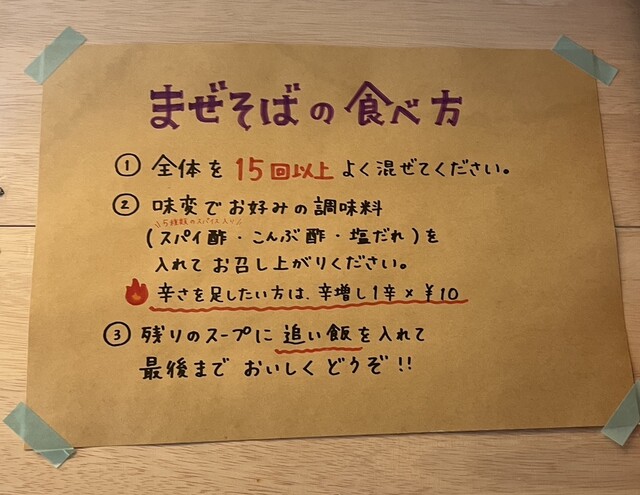 まぜそばの食べ方
① 全体を 15回以上 よく混ぜてください。
② 味変でお好みの調味料
5種類のスパイス入り
(スパイ酢・こんぶ酢・塩だれ)を
入れて お召し上がりください。
辛さを足したい方は、辛増し1辛×¥10
③ 残りのスープに 追い飯を入れて
最後まで おいしく どうぞ!!